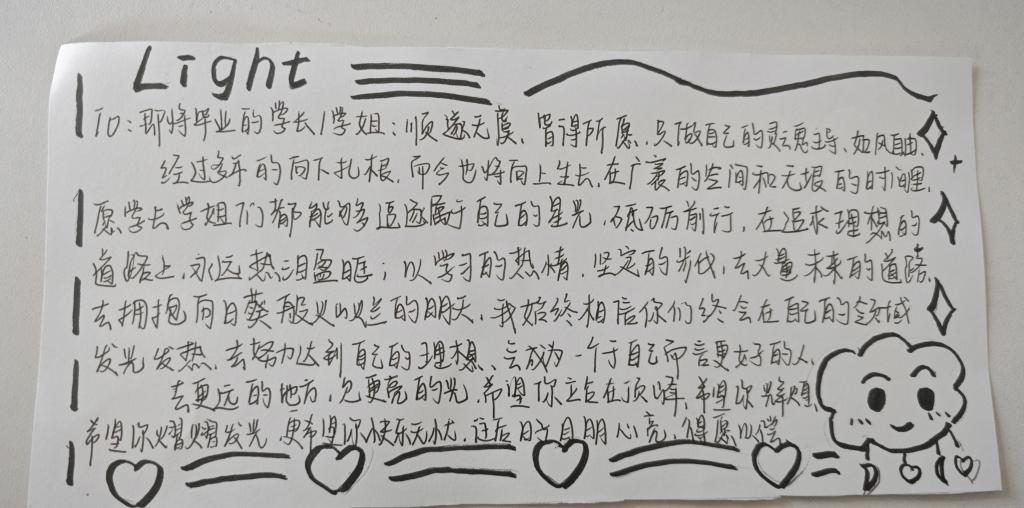 Light
To：即将毕业的学长/学姐：顺遂无虞，皆得所愿，只做自己的灵魂主导、如风自由、
经过多年的向下扎根，而今也将向上生长，在广袤的空间和无垠的时间里，
愿学长学姐们都能够追逐属于自己的星光，砥砺前行，在追求理想的
道路上，永远热泪盈眶；以学习的热情，坚定的步伐，去丈量未来的道路，
去拥抱向日葵般火灿烂的明天，我始终相信你们终会在自己的领域
发光发热，去努力达到自己的理想、会成为一个于自己而言更好的人，
去更远的地方，见更亮的光，希望你立占在顶峰，希望你辉煌，
希望你熠熠发光，更希望你快乐无忧，往后日子目明心亮，得愿以偿。